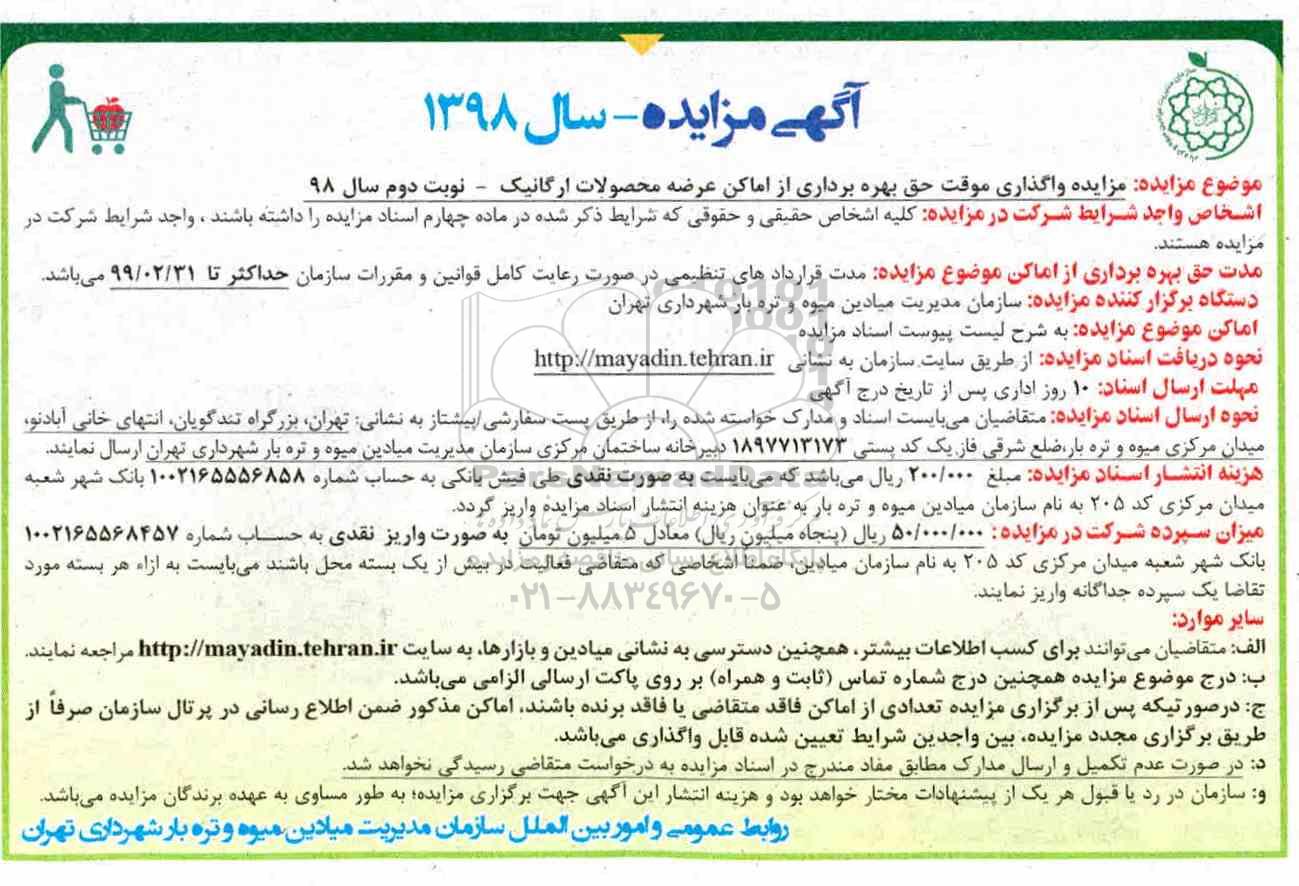 آگهی مزایده - سال ۱۳۹۸
موضوع مزایده: مزایده واگذاری موقت حق بهره برداری از اماکن عرضه محصولات ارگانیک - نوبت دوم سال ۹۸
اشخاص واجد شرایط شرکت در مزایده: کلیه اشخاص حقیقی و حقوقی که شرایط ذکر شده در ماده چهارم اسناد مزایده را داشته باشند، واجد شرایط شرکت در
مزایده هستند.
مدت حق بهره برداری از اماکن موضوع مزایده: مدت قرارداد های تنظیمی در صورت رعایت کامل قوانین و مقررات سازمان حداکثر تا ۹۹/۰۲/۳۱ می‌باشد.
دستگاه برگزار کننده مزایده: سازمان مدیریت میادین میوه و تره بار شهرداری تهران
اماکن موضوع مزایده: به شرح لیست پیوست اسناد مزایده
نحوه دریافت اسناد مزایده: از طریق سایت سازمان به نشانی http://mayadin.tehran.ir
مهلت ارسال اسناد: ۱۰ روز اداری پس از تاریخ درج آگهی
نحوه ارسال اسناد مزایده: متقاضیان می‌بایست اسناد و مدارک خواسته شده را، از طریق پست سفارشی/پیشتاز به نشانی: تهران، بزرگراه تندگویان، انتهای خانی آبادنو،
میدان مرکزی میوه و تره بار،ضلع شرقی فاز یک کد پستی ۱۸۹۷۷۱۳۱۷۳ دبیرخانه ساختمان مرکزی سازمان مدیریت میادین میوه و تره بار شهرداری تهران ارسال نمایند.
هزینه انتشار اسناد مزایده: مبلغ ۲۰۰/۰۰۰ ریال می‌باشد که می‌بایست به صورت نقدی طی فیش بانکی به حساب شماره ۱۰۰۲۱۶۵۵۵۶۸۵۸ بانک شهر شعبه
میدان مرکزی کد ۲۰۵ به نام سازمان میادین میوه و تره بار به عنوان هزینه انتشار اسناد مزایده واریز گردد.
میزان سپرده شرکت در مزایده : ۵۰/۰۰۰/۰۰۰ ریال (پنجاه میلیون ریال) معادل ۵ میلیون تومان به صورت واریز نقدی به حساب شماره ۱۰۰۲۱۶۵۵۶۸۴۵۷
بانک شهر شعبه میدان مرکزی کد ۲۰۵ به نام سازمان میادین، ضمنا اشخاصی که متقاضی فعالیت در بیش از یک بسته محل باشند می‌بایست به ازاء هر بسته مورد
تقاضا یک سپرده جداگانه واریز نمایند.
۰۲۱-۸۸۳۴۹۶۷۰-۵
سایر موارد:
الف: متقاضیان می‌توانند برای کسب اطلاعات بیشتر، همچنین دسترسی به نشانی میادین و بازارها، به سایت http://mayadin.tehran.ir مراجعه نمایند.
ب: درج موضوع مزایده همچنین درج شماره تماس (ثابت و همراه) بر روی پاکت ارسالی الزامی می‌باشد.
ج: درصورتیکه پس از برگزاری مزایده تعدادی از اماکن فاقد متقاضی یا فاقد برنده باشند، اماکن مذکور ضمن اطلاع رسانی در پرتال سازمان صرفاً از
طریق برگزاری مجدد مزایده، بین واجدین شرایط تعیین شده قابل واگذاری می‌باشد.
د: در صورت عدم تکمیل و ارسال مدارک مطابق مفاد مندرج در اسناد مزایده به درخواست متقاضی رسیدگی نخواهد شد.
و: سازمان در رد یا قبول هر یک از پیشنهادات مختار خواهد بود و هزینه انتشار این آگهی جهت برگزاری مزایده؛ به طور مساوی به عهده برندگان مزایده می‌باشد.
روابط عمومی و امور بین الملل سازمان مدیریت میادین میوه و تره بار شهرداری تهران